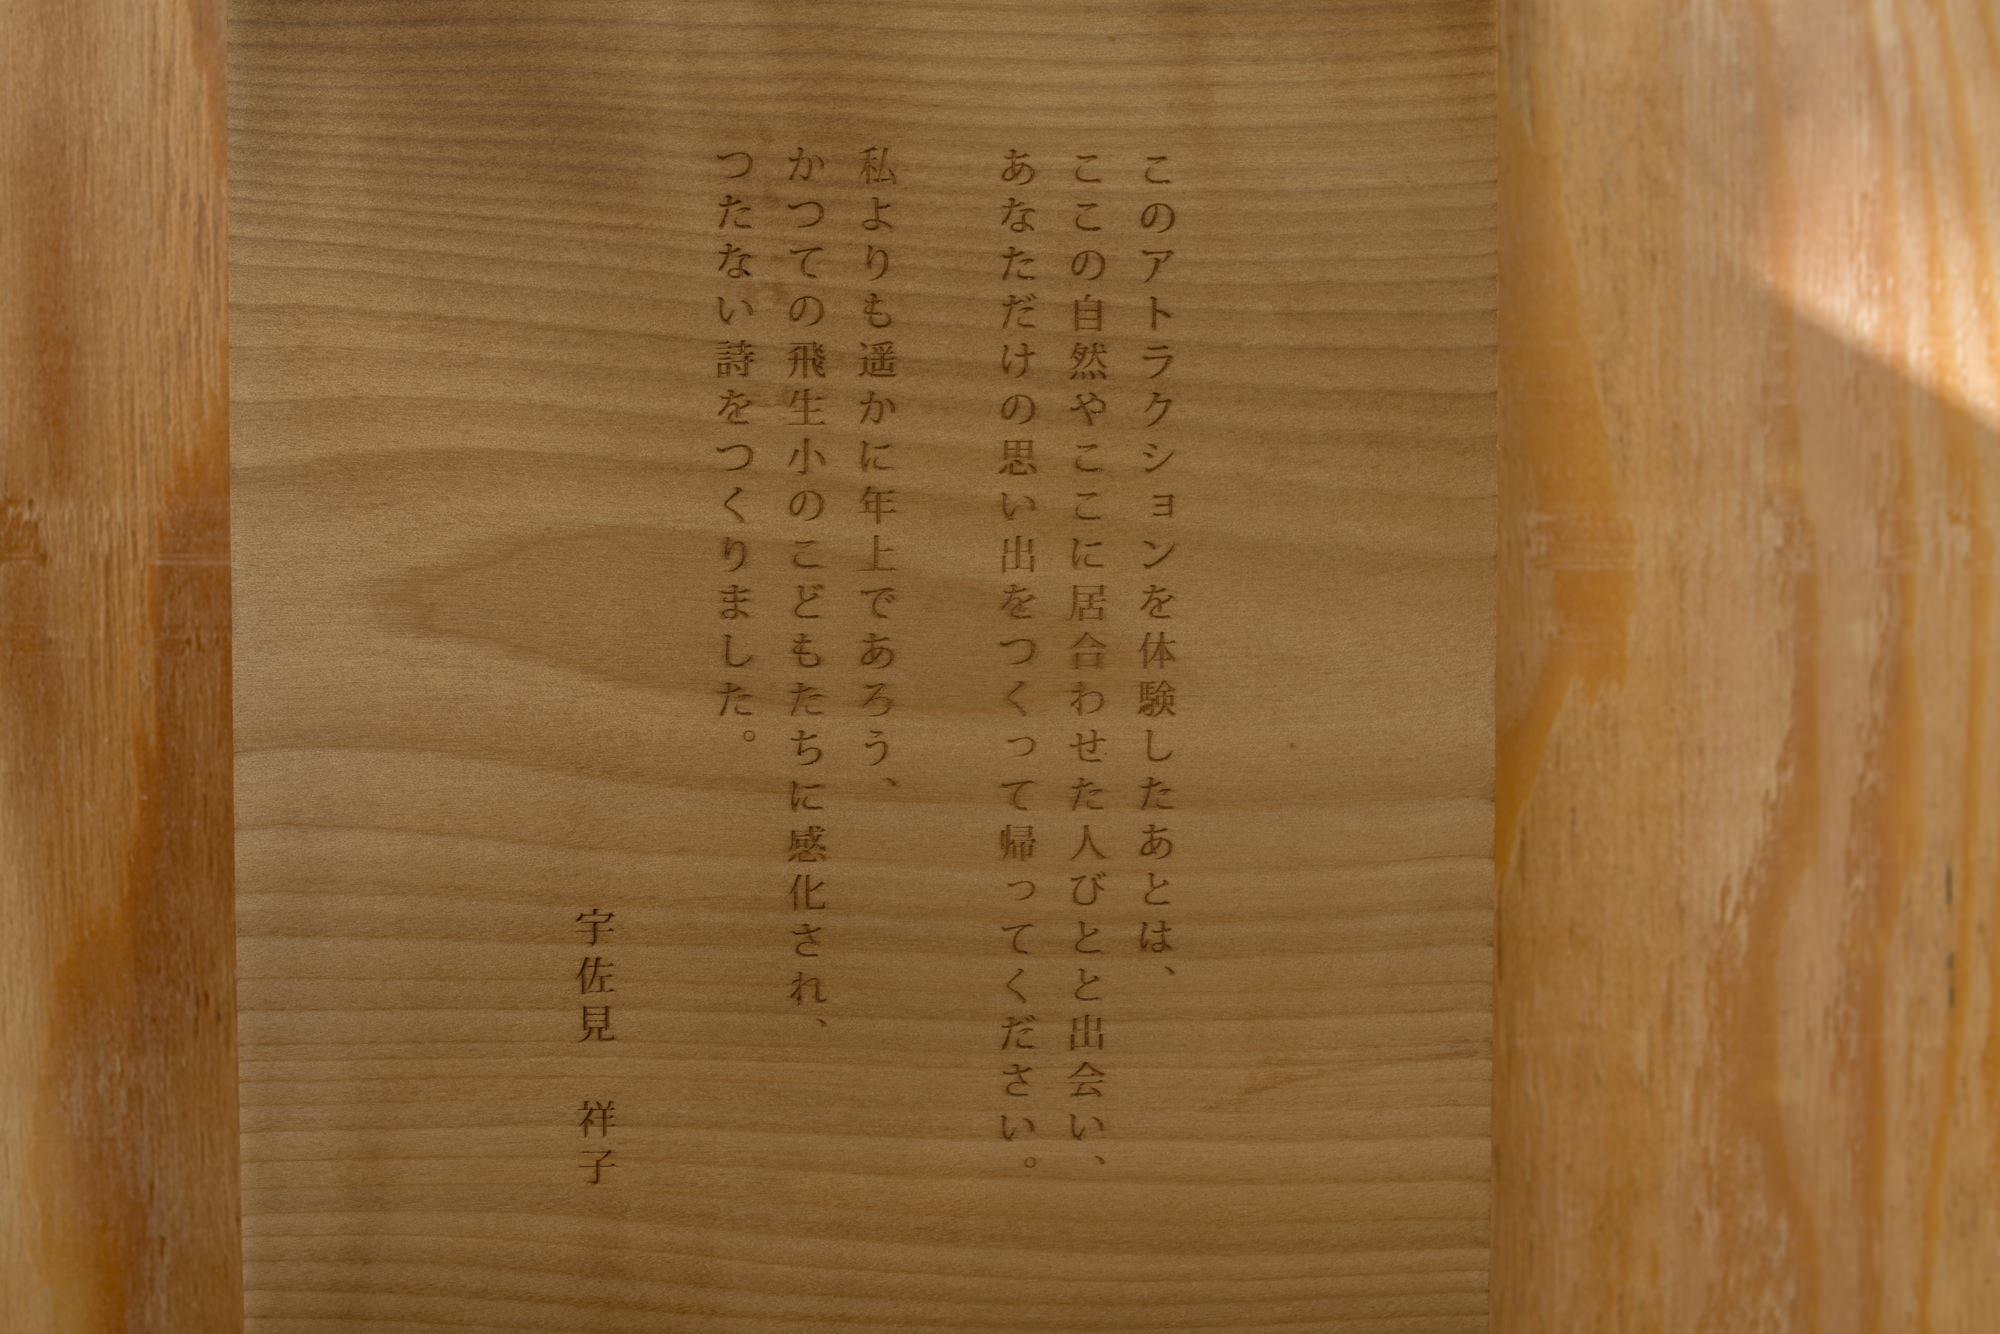 このアトラクションを体験したあとは、
ここの自然やここに居合わせた人びとと出会い、
あなただけの思い出をつくって帰ってください。
私よりも遥かに年上であろう、
かつての飛生小のこどもたちに感化され、
つたない詩をつくりました。
宇佐見　祥子